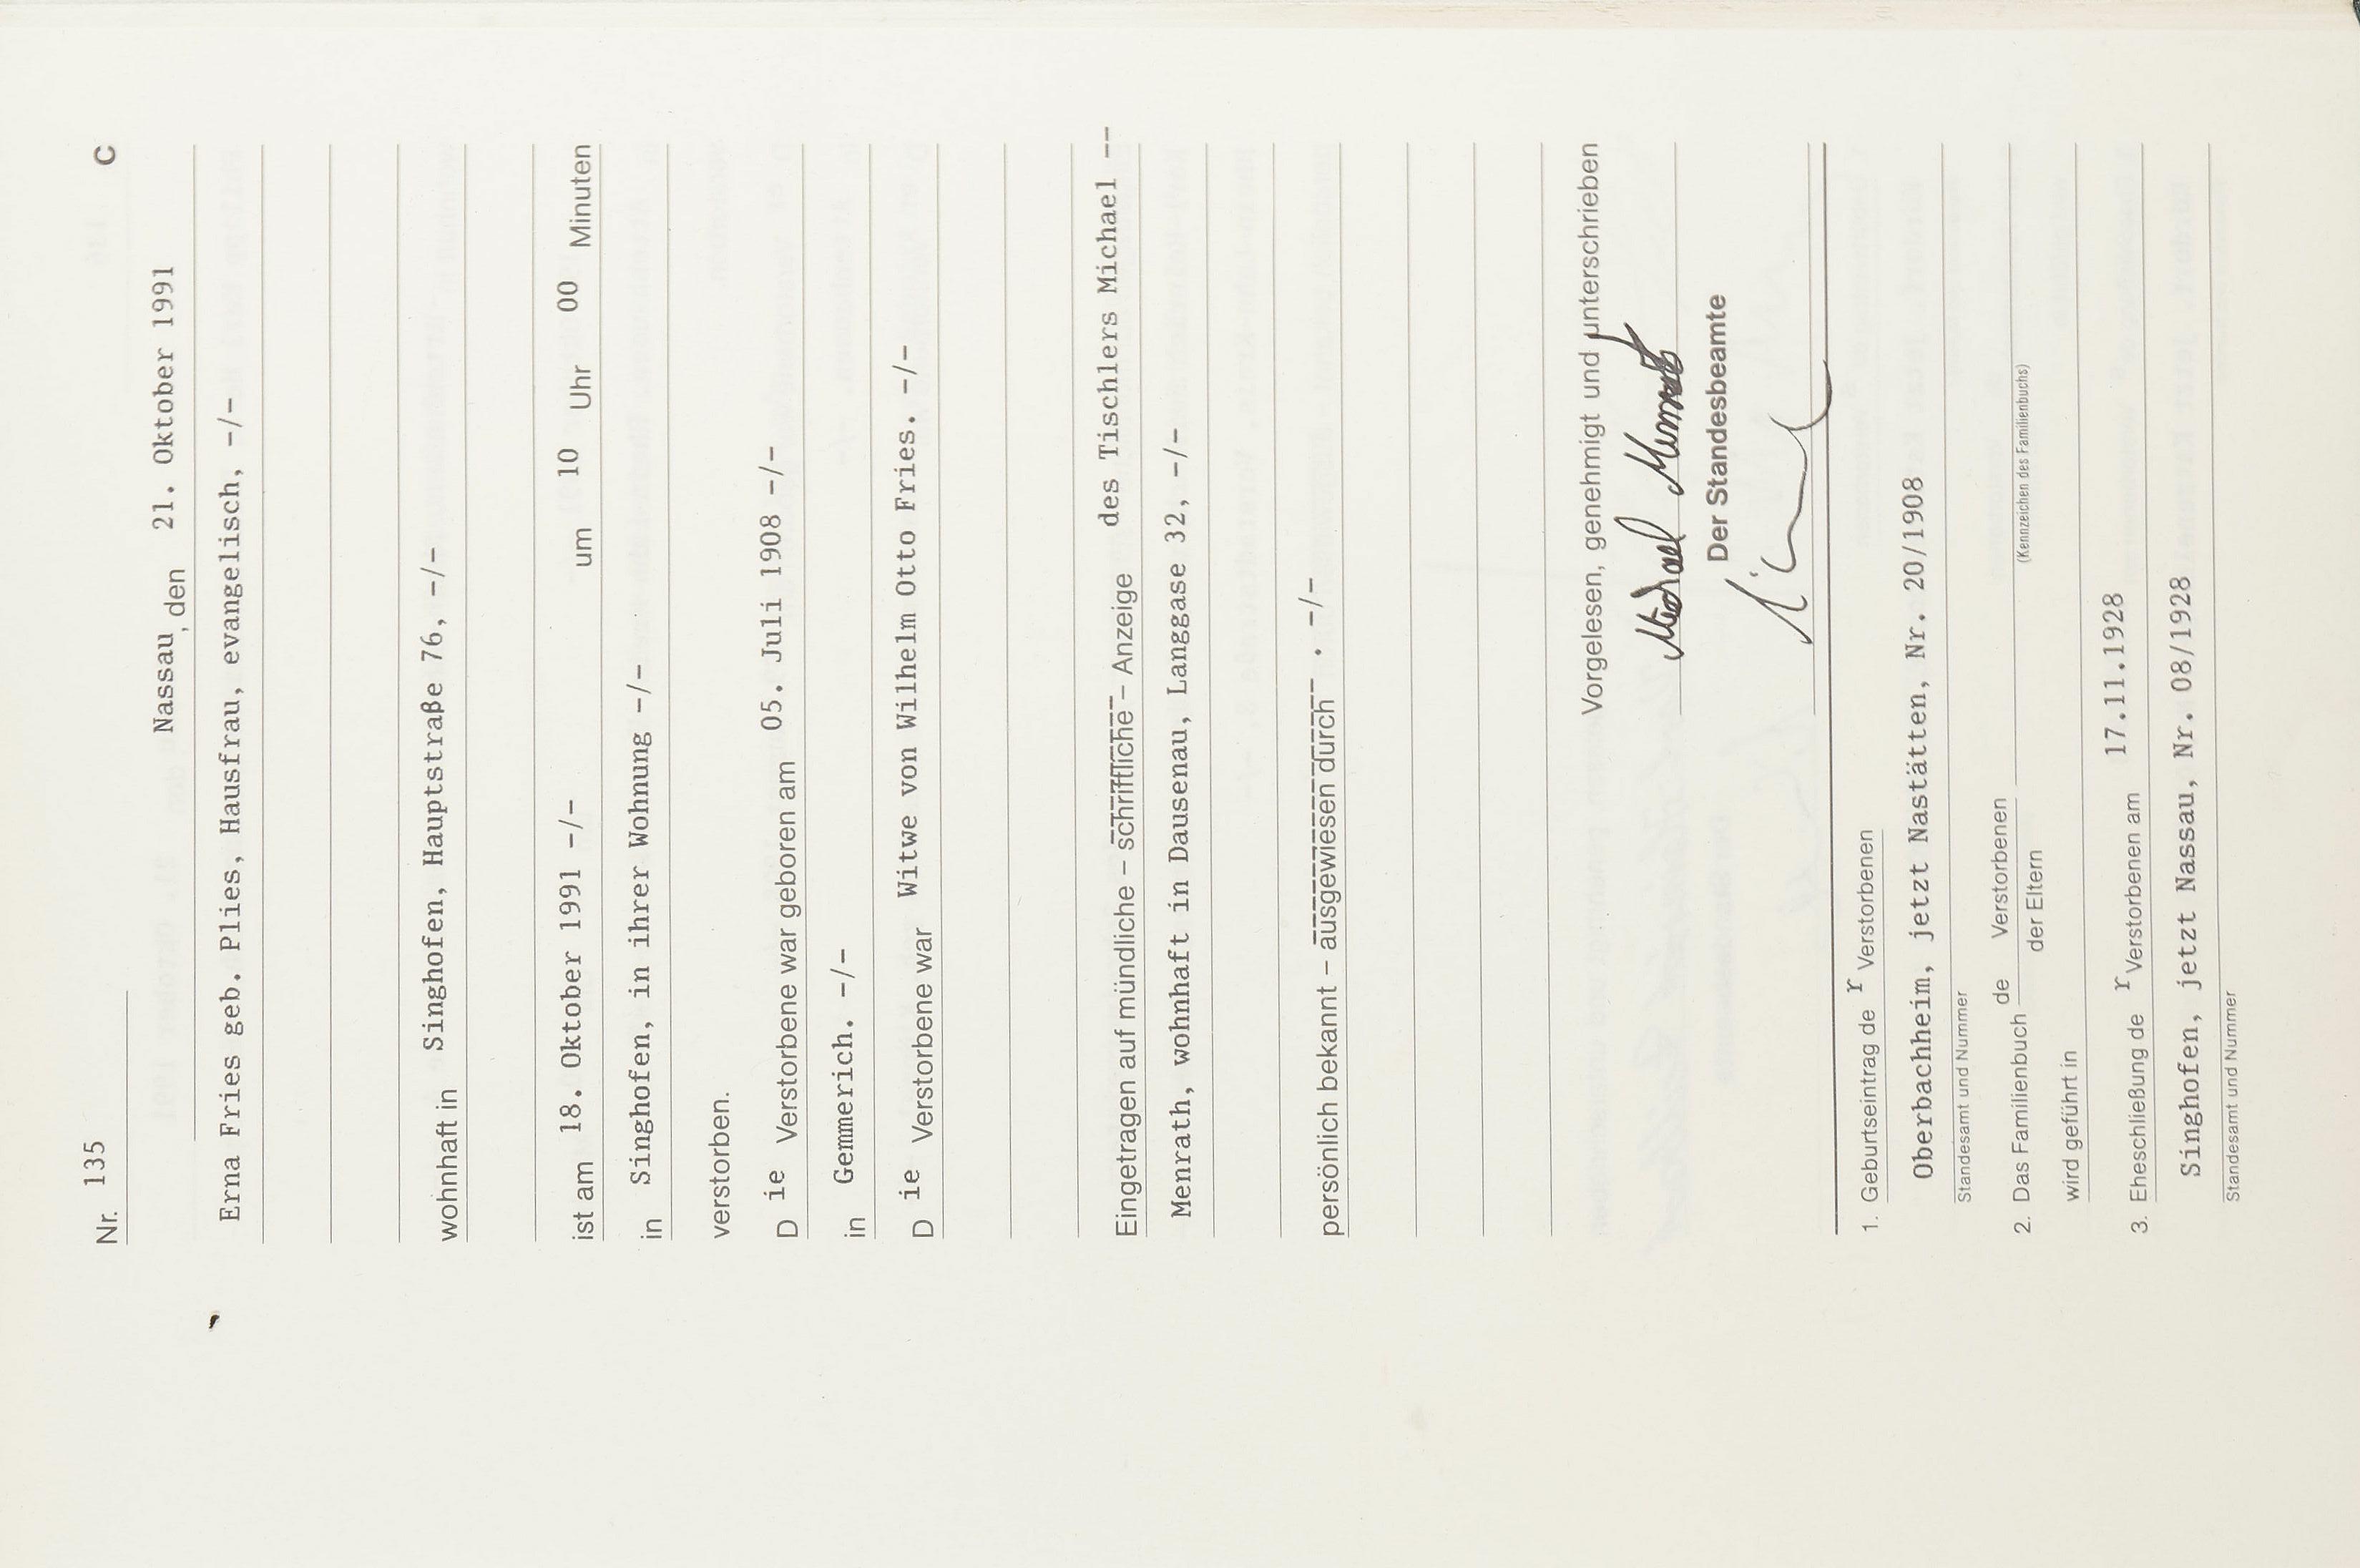 Nr. 135 C
Nassau, den 21. Oktober 1991
Erna Fries geb. Plies, Hausfrau, evangelisch, -/-
wohnhaft in Singhofen, Hauptstraße 76, -/-
ist am 18. Oktober 1991 -/- um 10 Uhr 00 Minuten
in Singhofen, in ihrer Wohnung -/-
verstorben.
Die Verstorbene war geboren am 05. Juli 1908 -/-
in Gemmerich. -/-
Die Verstorbene war Witwe von Wilhelm Otto Fries. -/-
Eingetragen auf mündliche – schriftliche – Anzeige des Tischlers Michael --
Menrath, wohnhaft in Dausenau, Langgase 32, -/-
persönlich bekannt – ausgewiesen durch . -/-
Vorgelesen, genehmigt und unterschrieben
Michael Menrath
Der Standesbeamte
1. Geburtseintrag der Verstorbenen
Oberbachheim, jetzt Nastätten, Nr. 20/1908
Standesamt und Nummer
2. Das Familienbuch de Verstorbenen
der Eltern
(Kennzeichen des Familienbuchs)
wird geführt in
3. Eheschließung der Verstorbenen am 17.11.1928
Singhofen, jetzt Nassau, Nr. 08/1928
Standesamt und Nummer